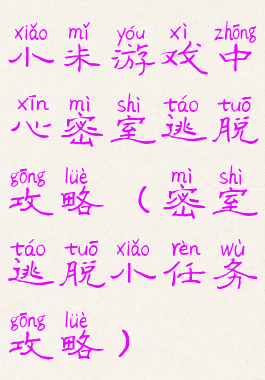 xiǎo mǐ yóu xì zhōng
小米游戏中
xīn mì shì táo tuō
心密室逃脱
gōng lüè mì shì
攻略（密室
táo tuō xiǎo rèn wù
逃脱小任务
gōng lüè
攻略）